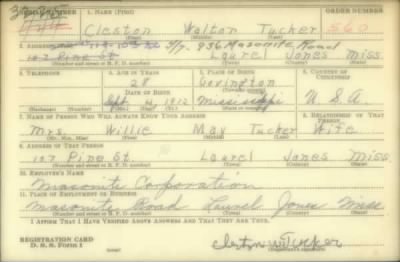 1. NAME (PRINT) ORDER NUMBER
Cleston Walton Tucker 560
2. ADDRESS 5/7. 936 Masonite Road
107 Pine St Laurel Jones Miss
(Number and street or R. F. D. number) (Town) (County) (State)
3. TELEPHONE 4. AGE IN YEARS 5. PLACE OF BIRTH 6. COUNTRY OF CITIZENSHIP
28 Covington
DATE OF BIRTH
Sept 4 1912 Mississippi U.S.A.
(Exchange) (Number) (Mo.) (Day) (Yr.) (State or country)
7. NAME OF PERSON WHO WILL ALWAYS KNOW YOUR ADDRESS 8. RELATIONSHIP OF THAT PERSON
Mrs. Willie May Tucker Wife
(Mr., Mrs., Miss) (First) (Middle) (Last)
9. ADDRESS OF THAT PERSON
107 Pine St. Laurel Jones Miss.
(Number and street or R. F. D. number) (Town) (County) (State)
10. EMPLOYER'S NAME
Masonite Corporation
11. PLACE OF EMPLOYMENT OR BUSINESS
Masonite Road Laurel Jones Miss
(Number and street or R. F. D. number) (Town) (County) (State)
I AFFIRM THAT I HAVE VERIFIED ABOVE ANSWERS AND THAT THEY ARE TRUE.
REGISTRATION CARD
D. S. S. FORM 1
Cleston W Tucker